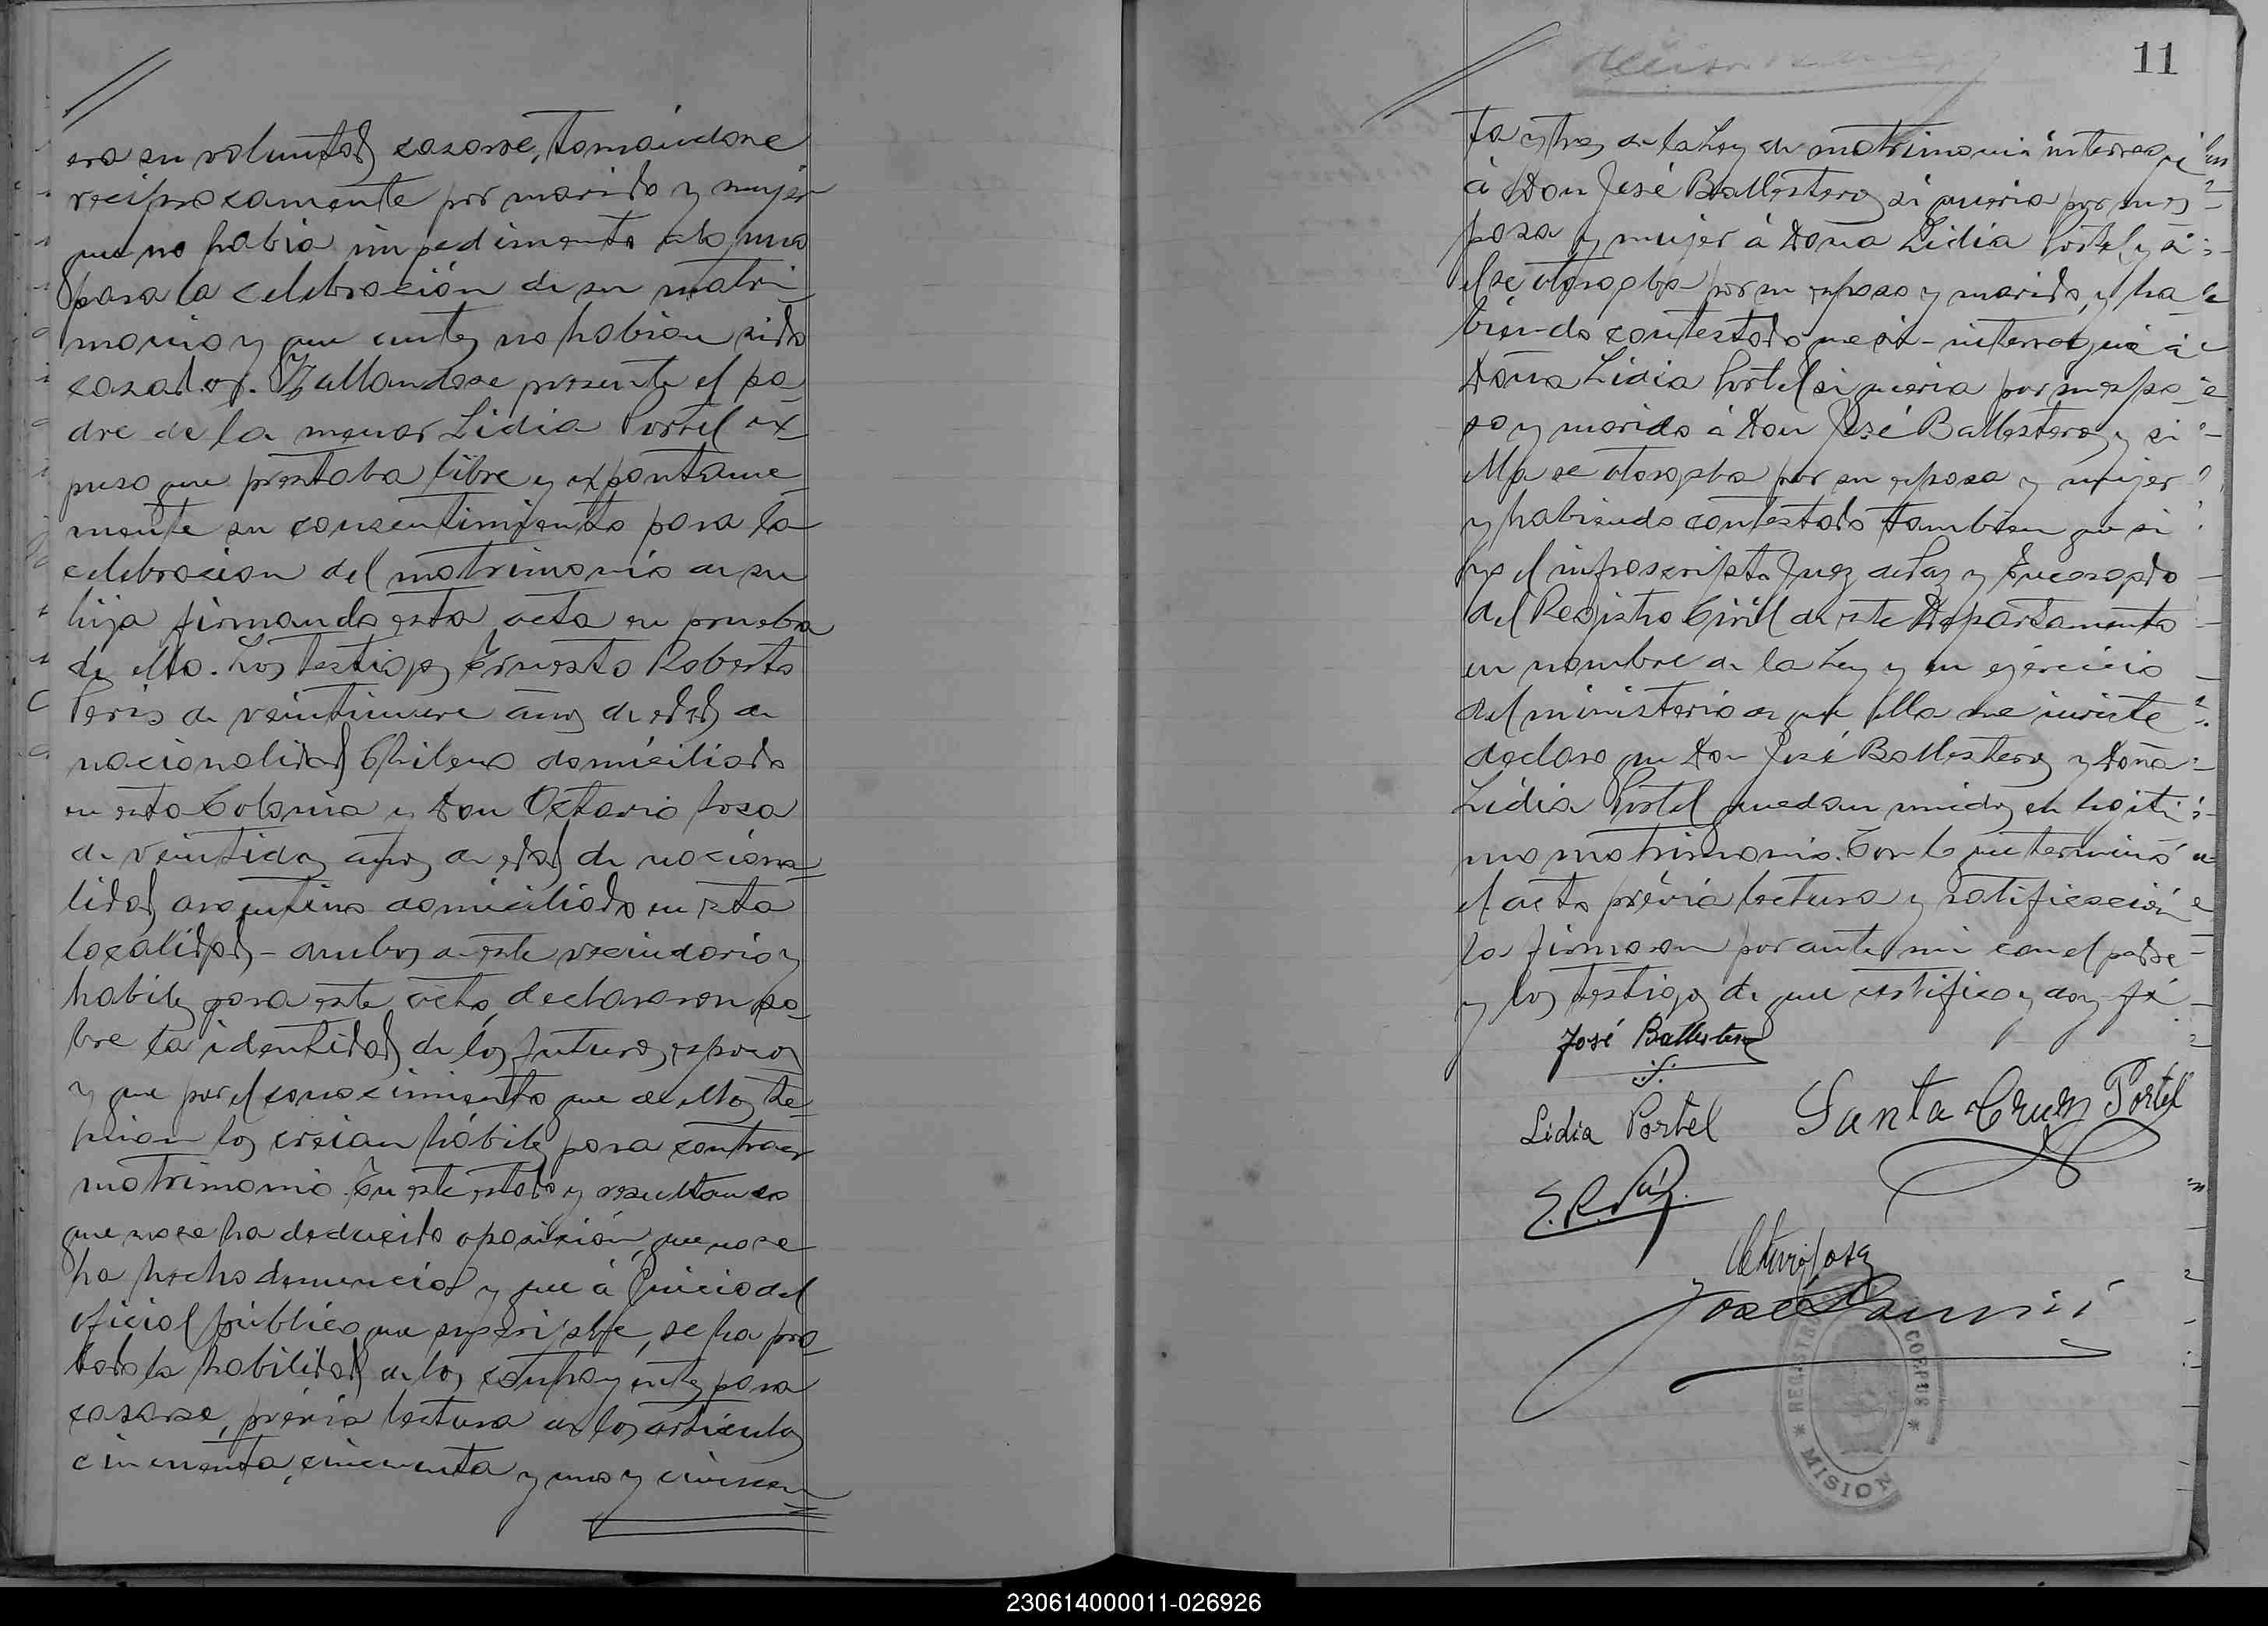 era su voluntad casarse, tomándose
reciprocamente por marido y mujer
que no habia impedimento alguno
para la celebración de su matri-
monio y que antes no habian sido
casados. Hallandose presente el pa-
dre de la menor Lidia Portel ex-
puso que prestaba libre y expontanea-
mente su consentimiento para la
celebracion del matrimonio de su
hija firmando esta acta en prueba
de ello. Los testigos Ernesto Roberto
de veintinueve años de edad de
nacionalidad Chilena domiciliado
en esta Colonia y Don Octavio Sosa
de veintidos años de edad de naciona-
lidad argentino domiciliado en esta
localidad - ambos de este vecindario y
habiles para este acto, declararon so-
bre la identidad de los futuros esposos
y que por el conocimiento que de ellos te-
nian los creian hábiles para contraer
matrimonio. En este estado y resultando
que no se ha deducido oposición, que no se
ha hecho denuncia y que á juicio del
oficial público que suscribe, se ha pro-
bado la habilidad de los contrayentes para
casarse, prévia lectura de los articulos
cincuenta, cincuenta y uno y cincuen
11
ta y tres de la Ley de matrimonio interrogué
á Don José Ballesteros si queria por su es-
posa y mujer á Doña Lidia Portel y si
el se otorgaba por su esposo y marido, y ha-
biendo contestado que si - interrogué á
Doña Lidia Portel si queria por su espo-
so y marido á Don José Ballesteros y si
ella se otorgaba por su esposa y mujer
y habiendo contestado tambien que si
yo el infrascripto Juez de Paz y Encargado
del Registro Civil de este Departamento
en nombre de la Ley y en ejercicio
del ministerio de que ella me inviste
declaro que Don José Ballesteros y Doña
Lidia Portel quedan unidos en legiti-
mo matrimonio. Con lo que terminó
el acto prévia lectura y ratificación
la firmaron por ante mi con el padre
y los testigos de que certifico y doy fé
José Ballesteros
Lidia Portel Santa Cruz Portel
E. R.
Octavio Sosa
José
REGISTRO CORPUS * MISIONES *
230614000011-026926